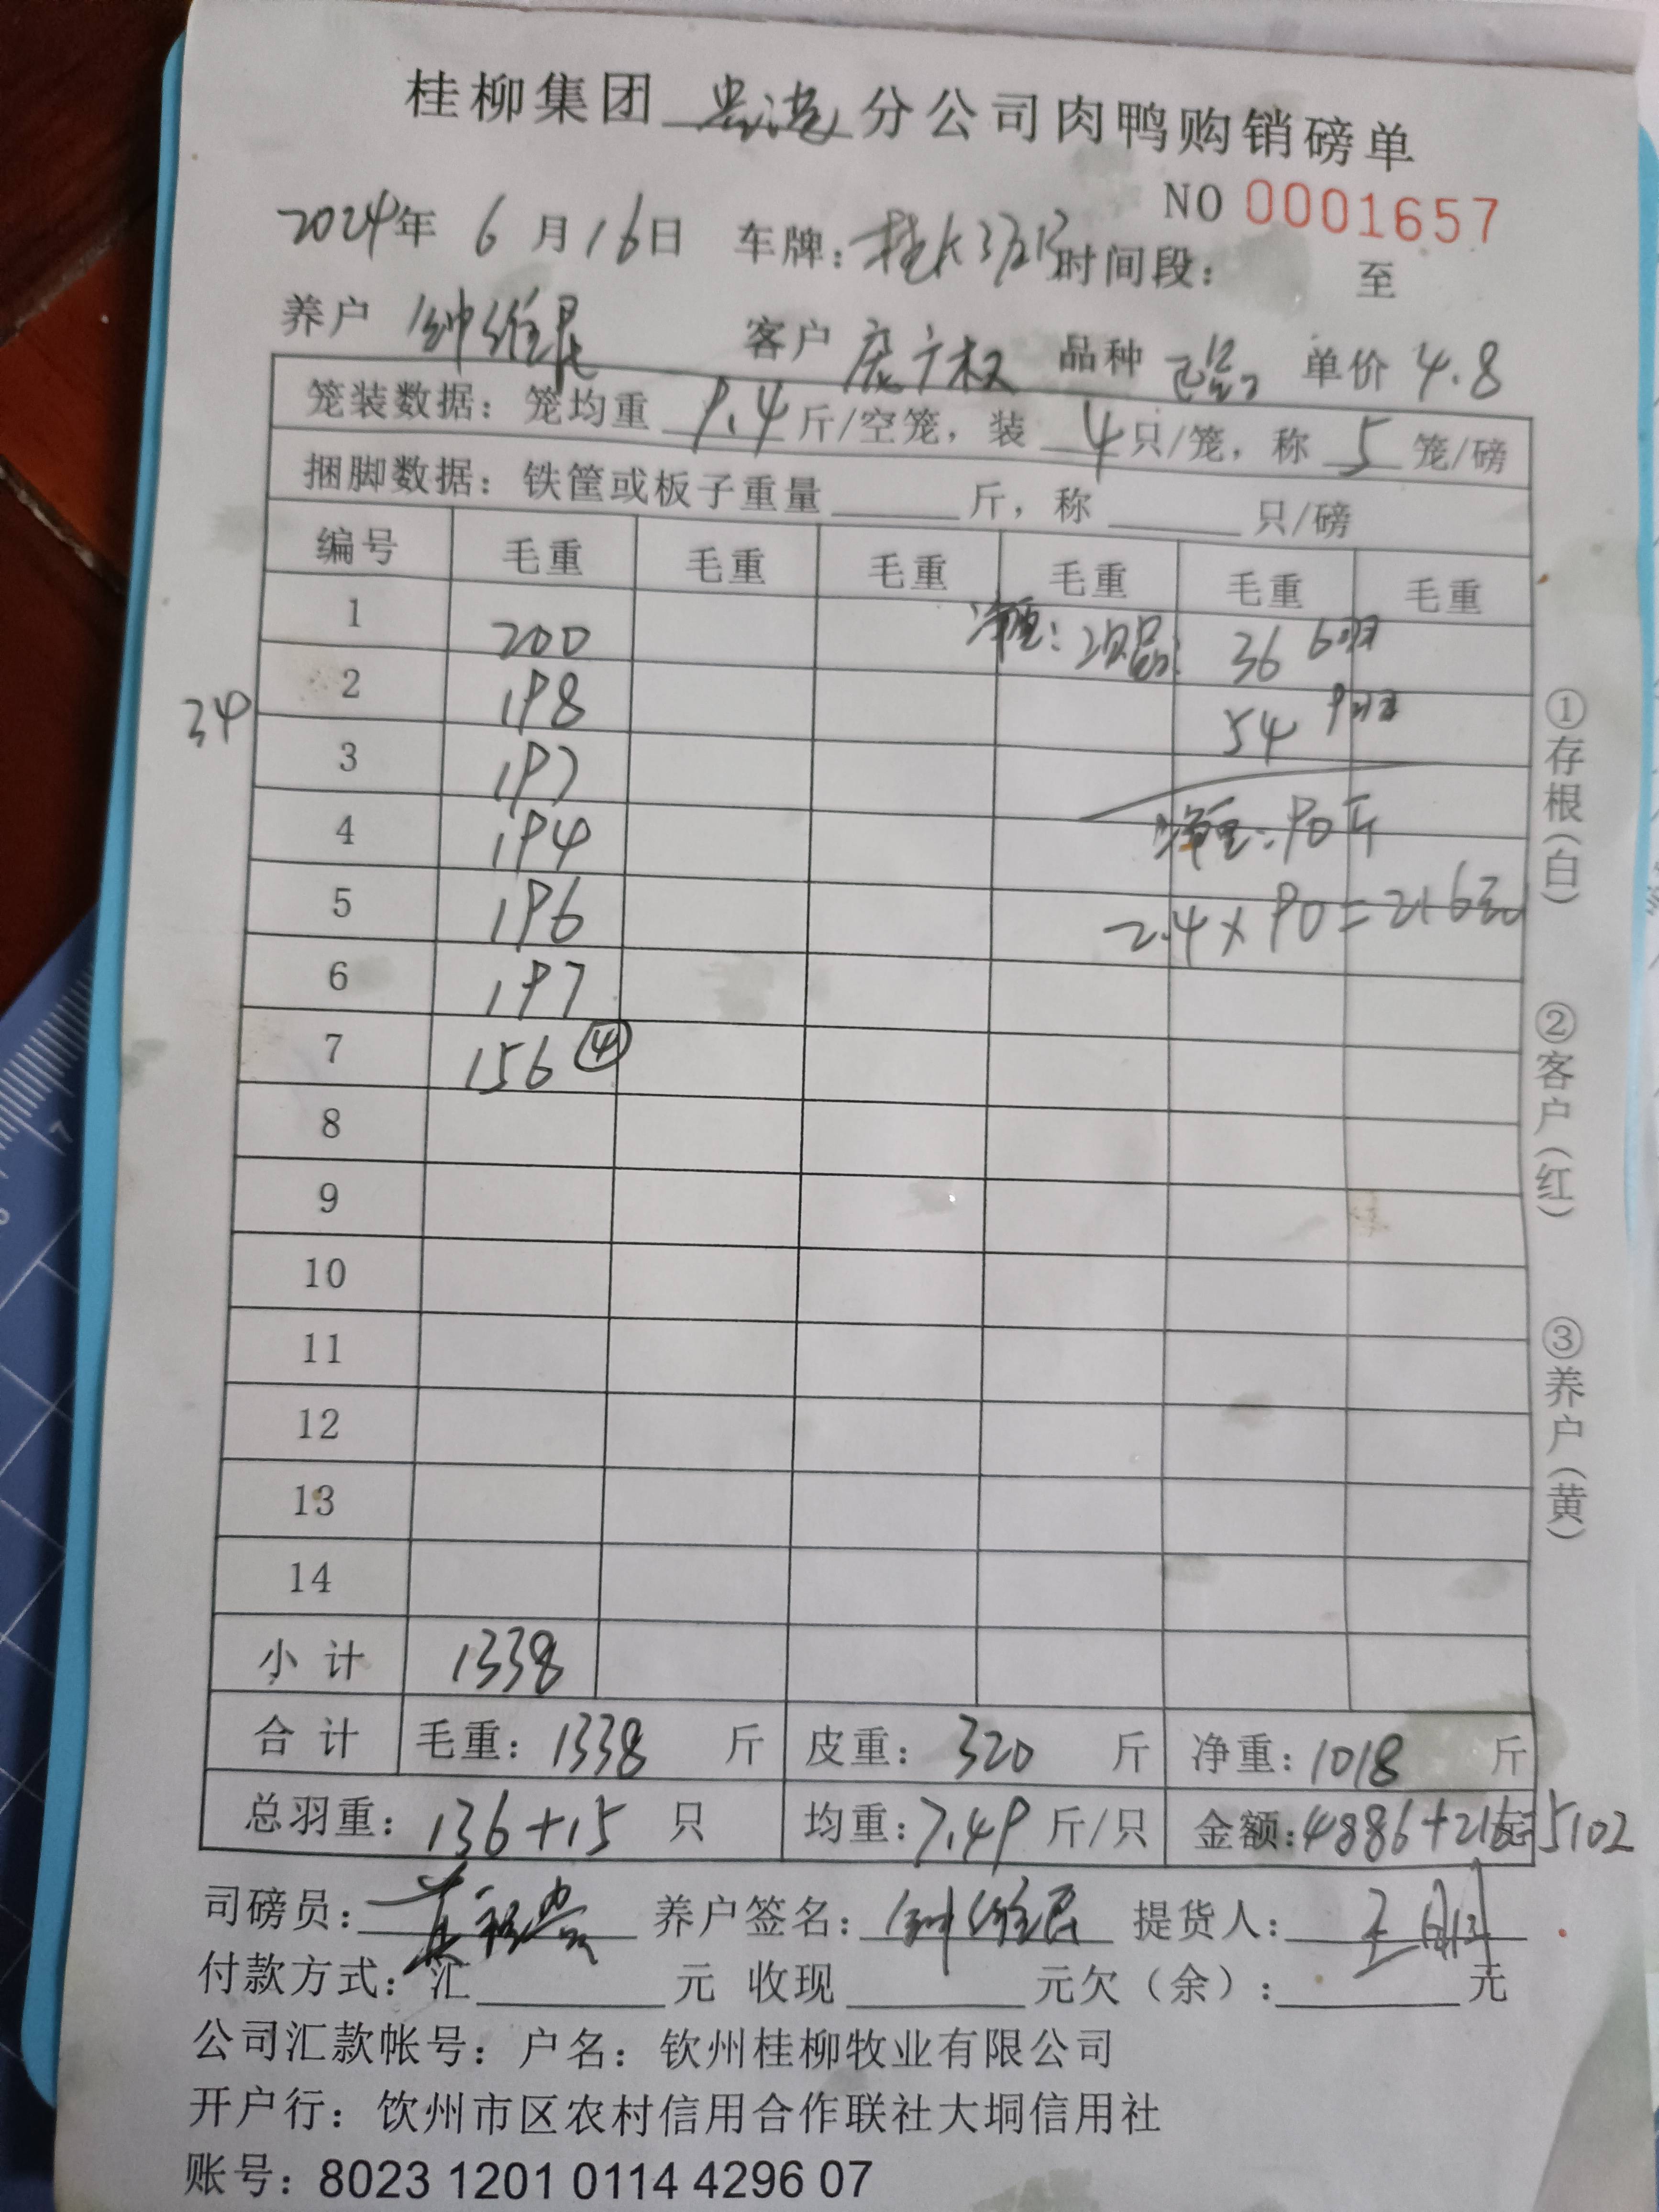 桂柳集团 贵港 分公司肉鸭购销磅单
NO 0001657
2024年 6 月 16 日 车牌: 时间段: 至
养户 钟维昆 客户 庞广权 品种 单价 4.8
笼装数据: 笼均重 9.4 斤/空笼, 装 4 只/笼, 称 5 笼/磅
捆脚数据: 铁筐或板子重量 斤, 称 只/磅
编号 毛重 毛重 毛重 毛重 毛重 毛重
1 200 净重: 次品: 36 6只
34
2 198 54 9只
3 197
4 194 净重: 90斤
5 196 2.4 × 90 = 216元
6 197
7 156 ④
8
9
10
11
12
13
14
小计 1338
合计 毛重: 1338 斤 皮重: 320 斤 净重: 1018 斤
总羽重: 136+15 只 均重: 7.49 斤/只 金额: 4886+216元=5102
司磅员: 养户签名: 钟维昆 提货人:
付款方式: 汇 元 收现 元欠(余): 元
公司汇款帐号: 户名: 钦州桂柳牧业有限公司
开户行: 钦州市区农村信用合作联社大垌信用社
账号: 8023 1201 0114 4296 07
①存根(白)
②客户(红)
③养户(黄)